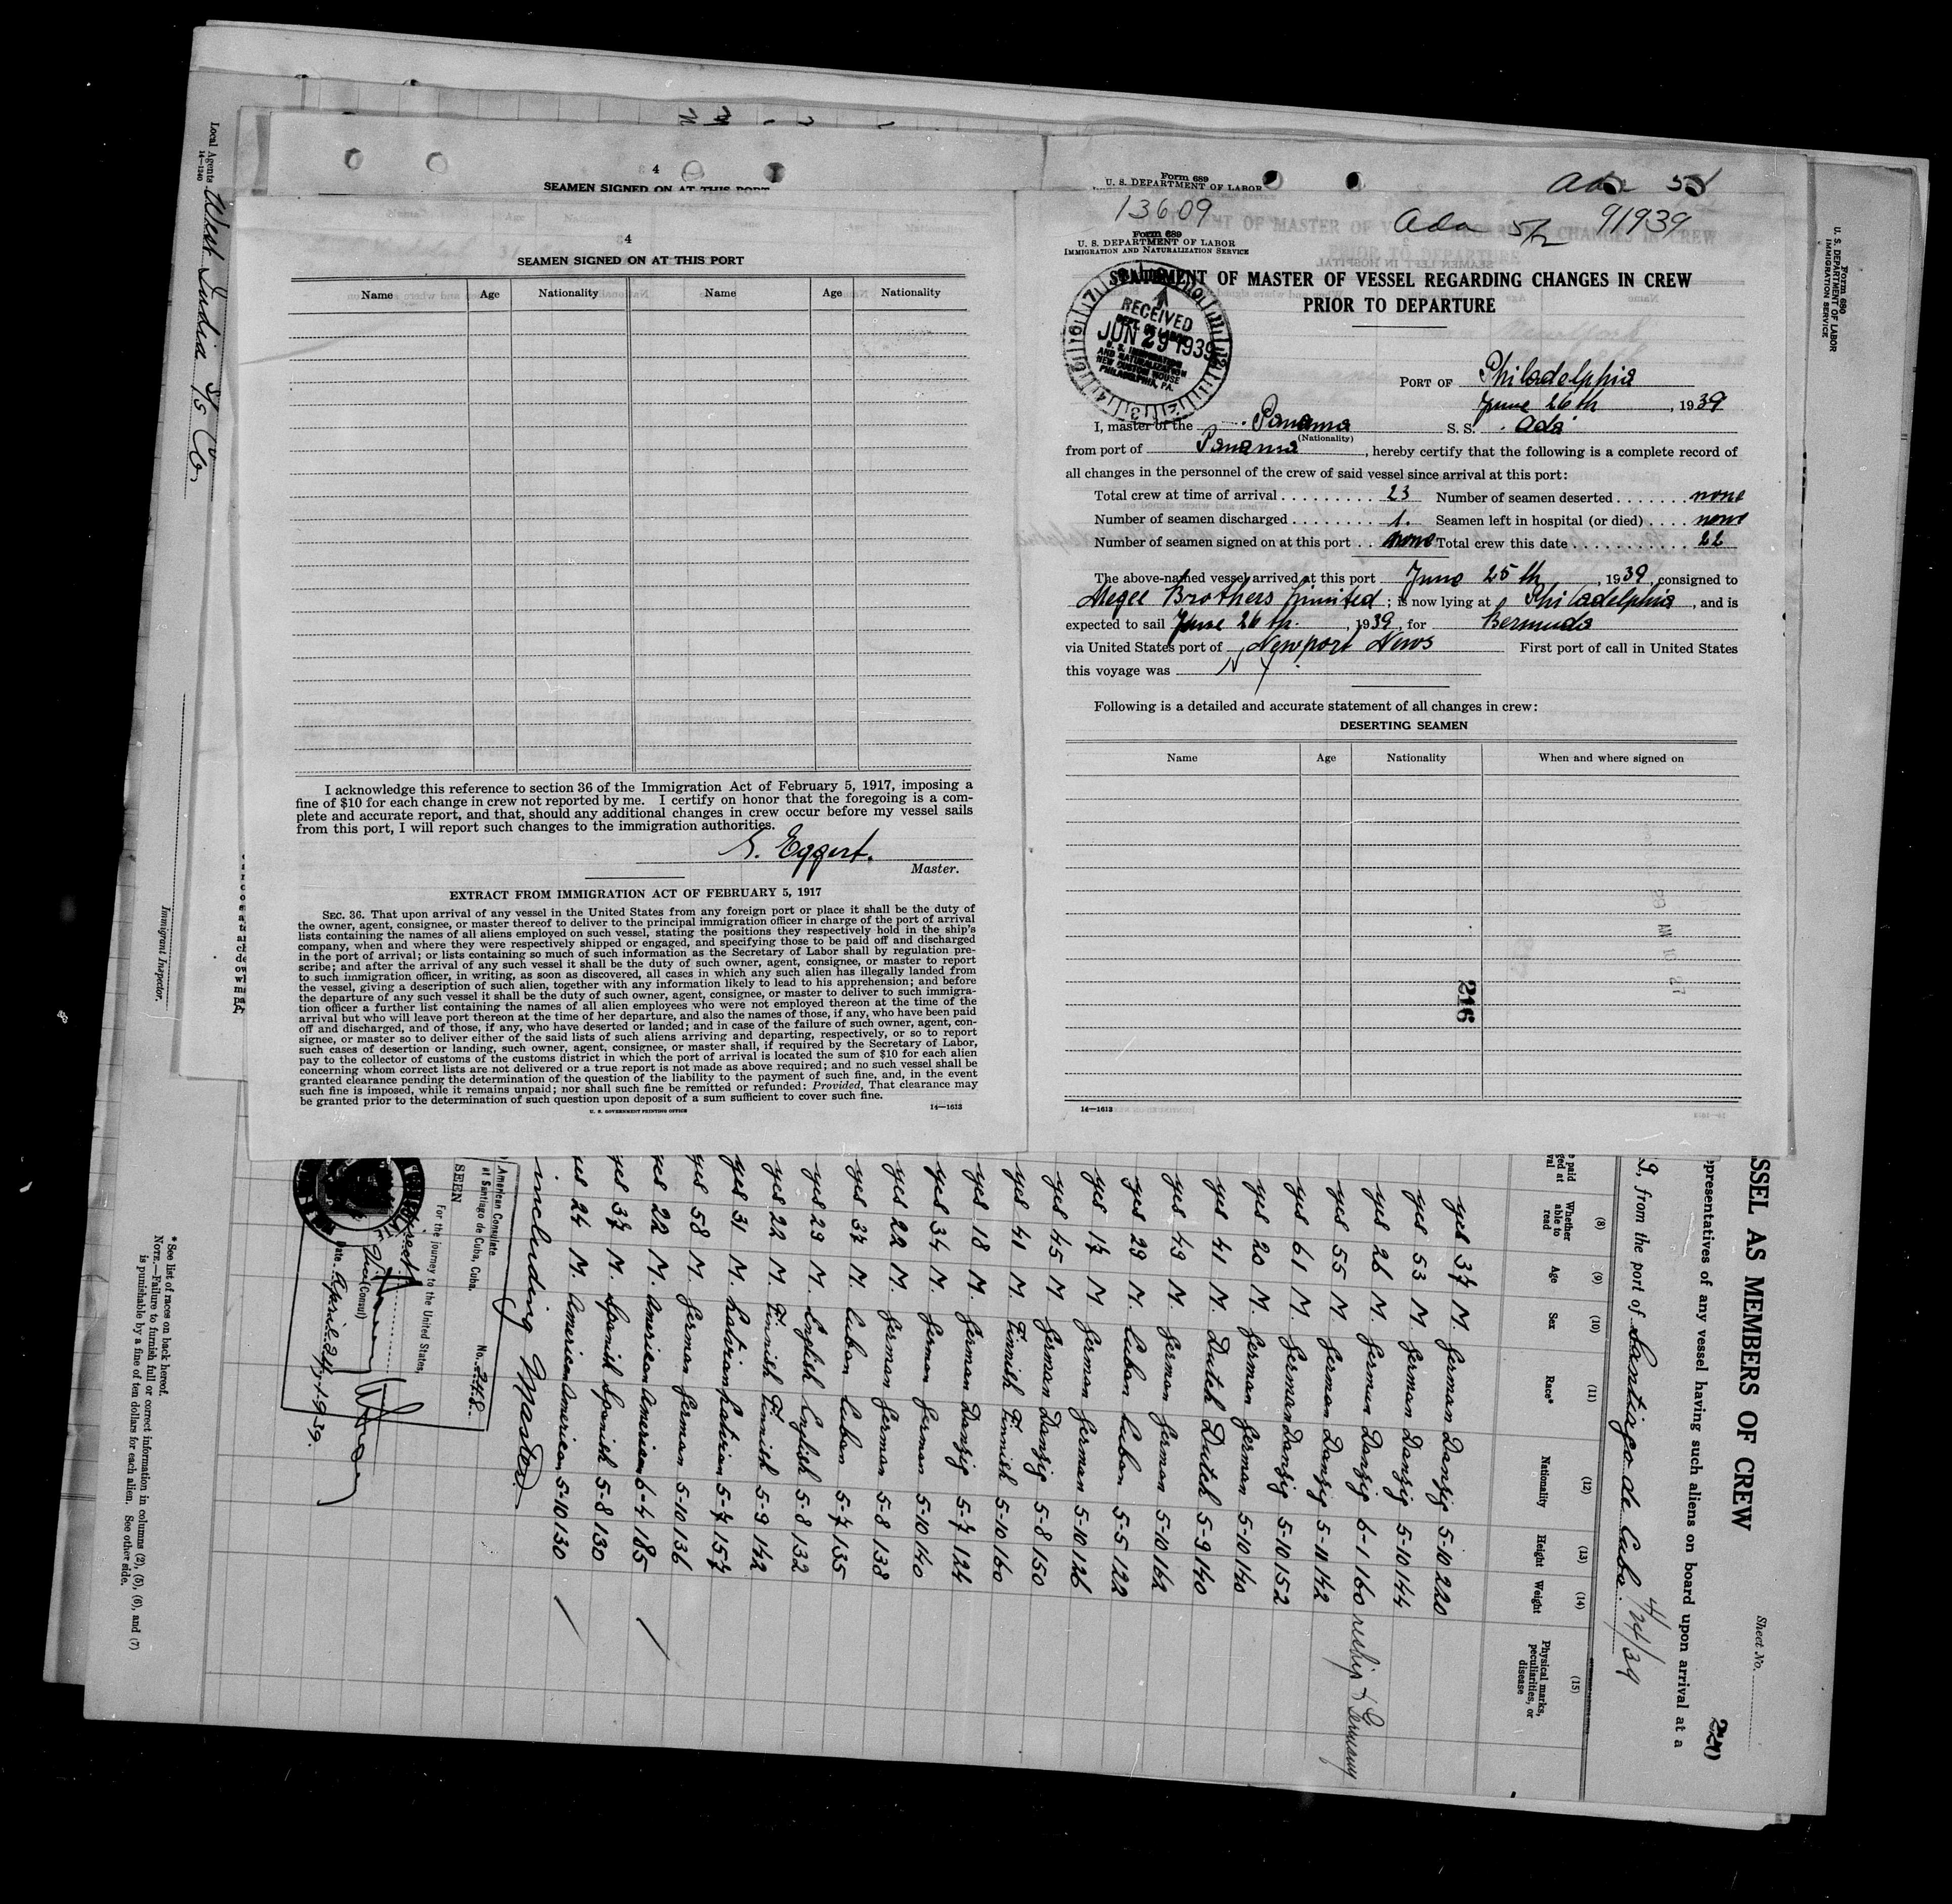 4
SEAMEN SIGNED ON AT THIS PORT
4
SEAMEN SIGNED ON AT THIS PORT
Name Age Nationality Name Age Nationality
I acknowledge this reference to section 36 of the Immigration Act of February 5, 1917, imposing a
fine of $10 for each change in crew not reported by me. I certify on honor that the foregoing is a com-
plete and accurate report, and that, should any additional changes in crew occur before my vessel sails
from this port, I will report such changes to the immigration authorities.
Eggert.
Master.
EXTRACT FROM IMMIGRATION ACT OF FEBRUARY 5, 1917
SEC. 36. That upon arrival of any vessel in the United States from any foreign port or place it shall be the duty of
the owner, agent, consignee, or master thereof to deliver to the principal immigration officer in charge of the port of arrival
lists containing the names of all aliens employed on such vessel, stating the positions they respectively hold in the ship's
company, when and where they were respectively shipped or engaged, and specifying those to be paid off and discharged
in the port of arrival; or lists containing so much of such information as the Secretary of Labor shall by regulation pre-
scribe; and after the arrival of any such vessel it shall be the duty of such owner, agent, consignee, or master to report
to such immigration officer, in writing, as soon as discovered, all cases in which any such alien has illegally landed from
the vessel, giving a description of such alien, together with any information likely to lead to his apprehension; and before
the departure of any such vessel it shall be the duty of such owner, agent, consignee, or master to deliver to such immigra-
tion officer a further list containing the names of all alien employees who were not employed thereon at the time of the
arrival but who will leave port thereon at the time of her departure, and also the names of those, if any, who have been paid
off and discharged, and of those, if any, who have deserted or landed; and in case of the failure of such owner, agent, con-
signee, or master so to deliver either of the said lists of such aliens arriving and departing, respectively, or so to report
such cases of desertion or landing, such owner, agent, consignee, or master shall, if required by the Secretary of Labor,
pay to the collector of customs of the customs district in which the port of arrival is located the sum of $10 for each alien
concerning whom correct lists are not delivered or a true report is not made as above required; and no such vessel shall be
granted clearance pending the determination of the question of the liability to the payment of such fine, and, in the event
such fine is imposed, while it remains unpaid; nor shall such fine be remitted or refunded: Provided, That clearance may
be granted prior to the determination of such question upon deposit of a sum sufficient to cover such fine.
U. S. GOVERNMENT PRINTING OFFICE 14—1613
Form 689
U. S. DEPARTMENT OF LABOR
13609
Ada 5/2 91939
Form 689
U. S. DEPARTMENT OF LABOR
IMMIGRATION AND NATURALIZATION SERVICE
STATEMENT OF MASTER OF VESSEL REGARDING CHANGES IN CREW
PRIOR TO DEPARTURE
RECEIVED
DEPT. OF LABOR
JUN 29 1939
U. S. IMMIGRATION
AND NATURALIZATION
NEW CUSTOM HOUSE
PHILADELPHIA, PA.
PORT OF Philadelphia
June 26th, 1939
I, master of the Panama S. S. Ada
(Nationality)
from port of Panama, hereby certify that the following is a complete record of
all changes in the personnel of the crew of said vessel since arrival at this port:
Total crew at time of arrival 23 Number of seamen deserted none
Number of seamen discharged 1. Seamen left in hospital (or died) none
Number of seamen signed on at this port none Total crew this date 22
The above-named vessel arrived at this port June 25th, 1939, consigned to
Megee Brothers Limited; is now lying at Philadelphia, and is
expected to sail June 26th, 1939, for Bermuda
via United States port of Newport News First port of call in United States
this voyage was N Y
Following is a detailed and accurate statement of all changes in crew:
DESERTING SEAMEN
Name Age Nationality When and where signed on
216
14—1613
Local Agents West India S/S Co
14—1240
Immigrant Inspector.
Form 680
U. S. DEPARTMENT OF LABOR
IMMIGRATION SERVICE
Sheet No.
220
SSEL AS MEMBERS OF CREW
epresentatives of any vessel having such aliens on board upon arrival at a
9, from the port of Santiago de Cuba. 4/24/39
(8) (9) (10) (11) (12) (13) (14) (15)
Whether able to read Age Sex Race* Nationality Height Weight Physical marks, peculiarities, or disease
yes 37 M. German Danzig 5-10 220
yes 53 M. German Danzig 5-10 144
yes 26 M. German Danzig 6-1 160 reship to Germany
yes 55 M. German Danzig 5-11 142
yes 61 M. German Danzig 5-10 152
yes 20 M. German German 5-10 140
yes 41 M. Dutch Dutch 5-9 140
yes 49 M. German German 5-10 162
yes 29 M. Cuban Cuban 5-5 122
yes 17 M. German German 5-10 126
yes 45 M. German Danzig 5-8 150
yes 41 M. Finnish Finnish 5-10 160
yes 18 M. German Danzig 5-7 124
yes 34 M. German German 5-10 140
yes 22 M. German German 5-8 138
yes 37 M. Cuban Cuban 5-7 135
yes 29 M. English English 5-8 132
yes 22 M. Finnish Finnish 5-9 142
yes 31 M. Latvian Latvian 5-7 157
yes 58 M. German German 5-10 136
yes 22 M. American American 6-4 185
yes 37 M. Spanish Spanish 5-8 130
yes 24 M. American American 5-10 130
including Master.
American Consulate
at Santiago de Cuba, Cuba. No. 248
SEEN
For the journey to the United States,
Vice Consul
Date April 24-1939.
* See list of races on back hereof.
NOTE.—Failure to furnish full or correct information in columns (2), (5), (6), and (7)
is punishable by a fine of ten dollars for each alien. See other side.